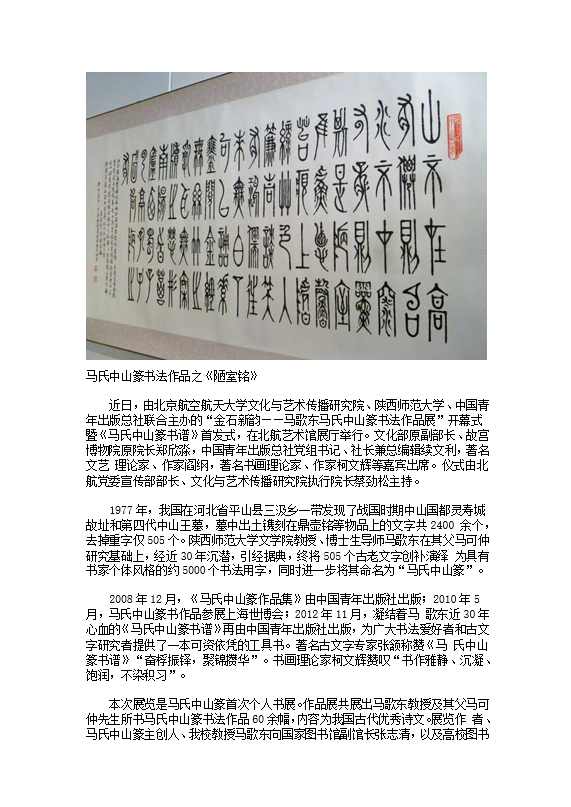 马氏中山篆书法作品之《陋室铭》
近日，由北京航空航天大学文化与艺术传播研究院、陕西师范大学、中国青
年出版总社联合主办的“金石新韵——马歌东马氏中山篆书法作品展”开幕式
暨《马氏中山篆书谱》首发式，在北航艺术馆展厅举行。文化部原副部长、故宫
博物院原院长郑欣淼，中国青年出版总社党组书记、社长兼总编辑续文利，著名
文艺 理论家、作家阎纲，著名书画理论家、作家柯文辉等嘉宾出席。仪式由北
航党委宣传部部长、文化与艺术传播研究院执行院长蔡劲松主持。
1977 年，我国在河北省平山县三汲乡一带发现了战国时期中山国都灵寿城
故址和第四代中山王墓，墓中出土镌刻在鼎壶铭等物品上的文字共 2400 余个，
去掉重字仅 505 个。陕西师范大学文学院教授、博士生导师马歌东在其父马可仲
研究基础上，经近 30 年沉潜，引经据典，终将 505 个古老文字创补演绎 为具有
书家个体风格的约 5000 个书法用字，同时进一步将其命名为“马氏中山篆”。
2008 年 12 月，《马氏中山篆作品集》由中国青年出版社出版；2010 年 5
月，马氏中山篆书作品参展上海世博会；2012 年 11 月，凝结着马 歌东近 30 年
心血的《马氏中山篆书谱》再由中国青年出版社出版，为广大书法爱好者和古文
字研究者提供了一本可资依凭的工具书。著名古文字专家张颔称赞《马 氏中山
篆书谱》“奋桴振铎，聚锦攒华”。书画理论家柯文辉赞叹“书作雅静、沉凝、
饱润，不染积习”。
本次展览是马氏中山篆首次个人书展。作品展共展出马歌东教授及其父马可
仲先生所书马氏中山篆书法作品 60 余幅，内容为我国古代优秀诗文。展览作 者、
马氏中山篆主创人、我校教授马歌东向国家图书馆副馆长张志清，以及高校图书